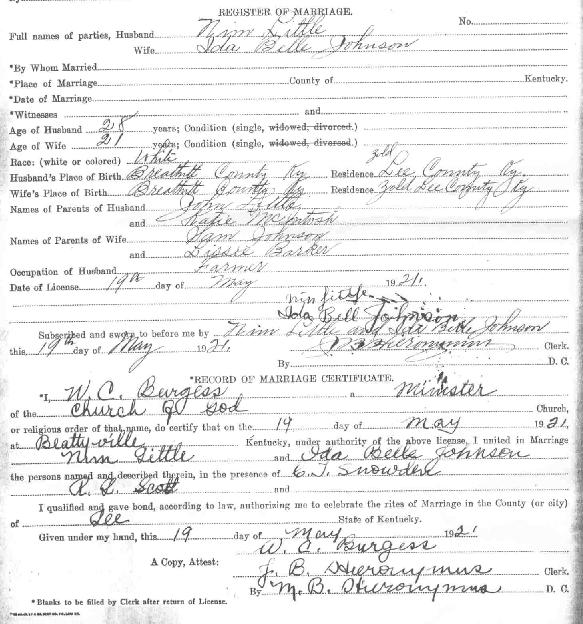 REGISTER OF MARRIAGE.
No.
Full names of parties, Husband Nim Little
Wife Ida Belle Johnson
*By Whom Married
*Place of Marriage County of Kentucky.
*Date of Marriage
*Witnesses and
Age of Husband 28 years; Condition (single, widowed, divorced.)
Age of Wife 21 years; Condition (single, widowed, divorced.)
Race: (white or colored) White
Husband's Place of Birth Breathitt County Ky Residence Lee County Ky.
Wife's Place of Birth Breathitt County Ky Residence Lee County Ky
Names of Parents of Husband John Little
and Katie McIntosh
Names of Parents of Wife Sam Johnson
and Lissie Barker
Occupation of Husband Farmer
Date of License 19th day of May 1921.
Nim Little
Ida Bell Johnson
Subscribed and sworn to before me by Nim Little and Ida Belle Johnson
this 19th day of May 1921. Clerk.
By D. C.
*RECORD OF MARRIAGE CERTIFICATE.
*I, W. C. Burgess a Minister
of the Church of God Church,
or religious order of that name, do certify that on the 19 day of May 1921
at Beattyville Kentucky, under authority of the above license, I united in Marriage
Nim Little and Ida Belle Johnson
the persons named and described therein, in the presence of C. T. Snowden
R. L. Scott and
I qualified and gave bond, according to law, authorizing me to celebrate the rites of Marriage in the County (or city)
of Lee State of Kentucky.
Given under my hand, this 19 day of May 1921
W. C. Burgess
A Copy, Attest: J. B. Hieronymus Clerk.
By M. B. Hieronymus D. C.
*Blanks to be filled by Clerk after return of License.